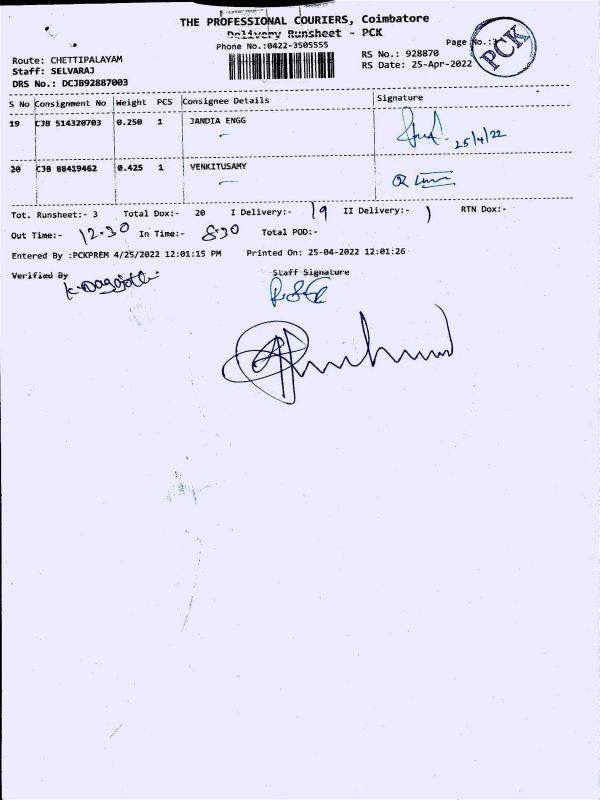 THE PROFESSIONAL COURIERS, Coimbatore
Delivery Runsheet - PCK
Phone No.:0422-3505555
Page No.:3
PCK
Route: CHETTIPALAYAM
RS No.: 928870
Staff: SELVARAJ
RS Date: 25-Apr-2022
DRS No.: DCJB92887003
S No Consignment No Weight PCS Consignee Details Signature
19 CJB 514320703 0.250 1 JANDIA ENGG
25/4/22
20 CJB 88419462 0.425 1 VENKITUSAMY
Tot. Runsheet:- 3 Total Dox:- 20 I Delivery:- 19 II Delivery:- 1 RTN Dox:-
Out Time:- 12.30 In Time:- 8.30 Total POD:-
Entered By :PCKPREM 4/25/2022 12:01:15 PM Printed On: 25-04-2022 12:01:26
Verified By Staff Signature